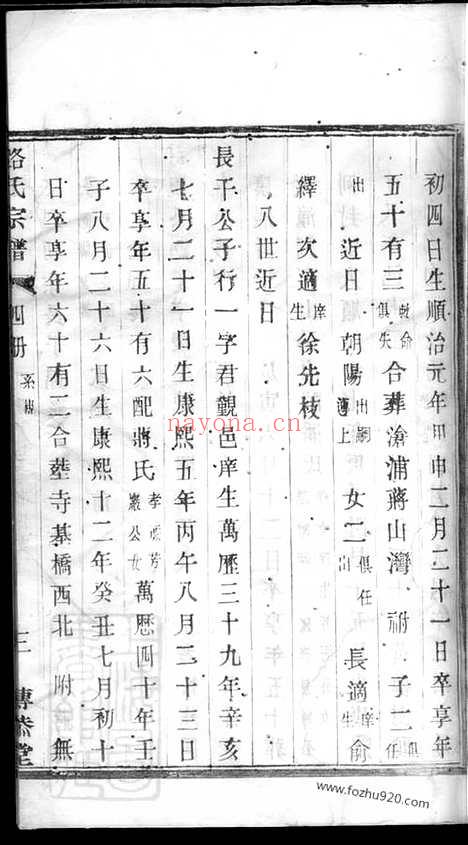 初四日生順治元年甲申二月二十一日卒享年
五十有三 俱失 合葬滄浦蔣山灣 祔 子二 俱任出
近日 朝陽 出嗣 女二 俱任出 長適 庠生 俞
繹次適 庠生 徐先枝
八世近日
長干公子行一字君觀邑庠生萬曆三十九年辛亥
七月二十一日生康熙五年丙午八月二十三日
卒享年五十有六配蔣氏 孝 芳巖公女 萬曆四十年壬
子八月二十六日生康熙十二年癸丑七月初十
日卒享年六十有二合塟寺基橋西北 附 無
氏宗譜 四册 系 三 傳恭堂
nayona.cn
www.fozhu920.com